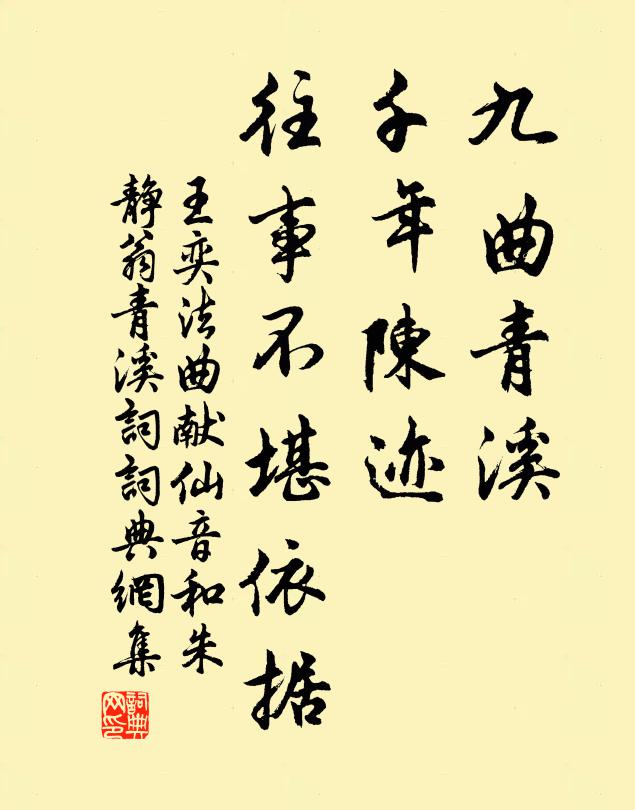 九曲青溪
千年陳迹
往事不堪依据
王奕法曲献仙音和朱
静翁青溪詞詞典網集
詞典网印